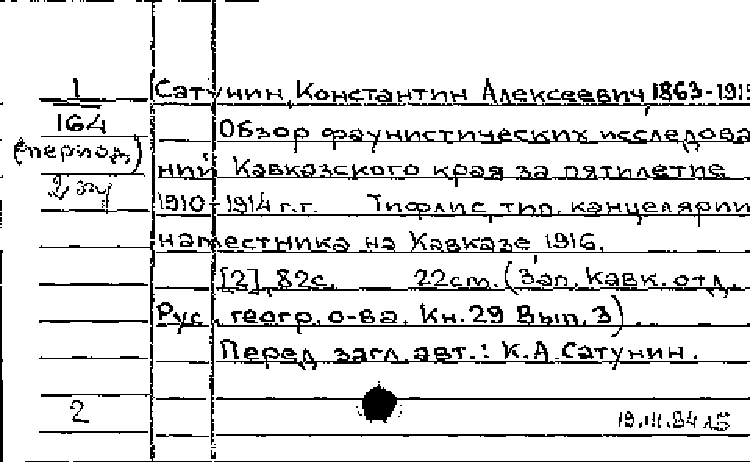 1 Сатунин, Константин Алексеевич, 1863-1915
164 Обзор фаунистических исследова
(период) ний Кавказского края за пятилетие
2 эу 1910-1914 г.г. Тифлис, тип. канцелярии
наместника на Кавказе 1916.
[2], 82с. 22см. (Зап. Кавк. отд.
Рус. геогр. о-ва. Кн. 29 Вып. 3).
Перед загл. авт.: К.А. Сатунин.
2